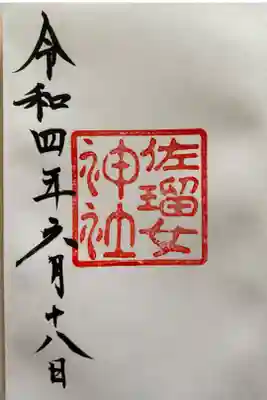 佐瑠女
神社
令和四年六月十八日